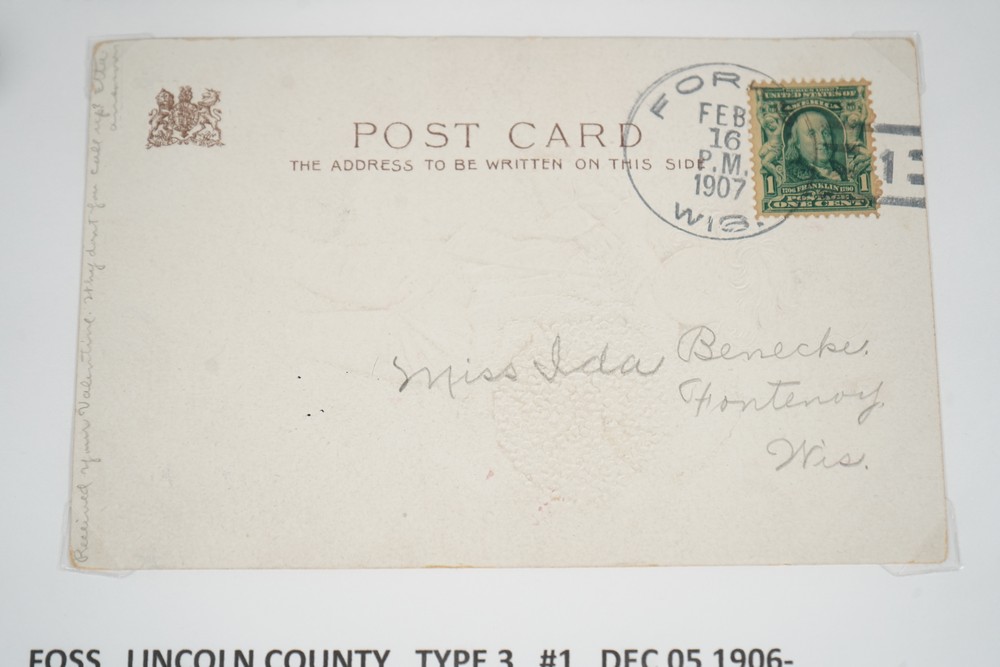 POST CARD
THE ADDRESS TO BE WRITTEN ON THIS SIDE
FOR
FEB
16
P.M.
1907
WIS.
13
UNITED STATES OF
AMERICA
1 1706 FRANKLIN 1790 1
POSTAGE
ONE CENT
Miss Ida Benecke.
Fontenoy
Wis.
Received your Valentine. Why don't you call up? Etta
FOSS LINCOLN COUNTY TYPE 3 #1 DEC 05 1906-